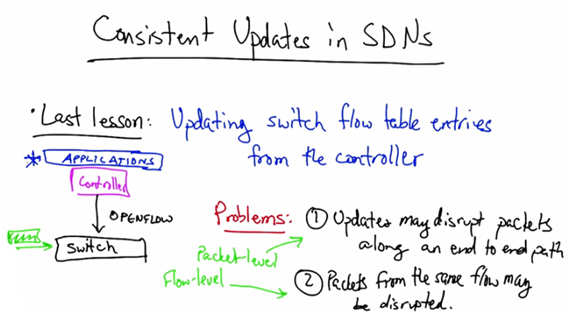 Consistent Updates in SDNs
• Last lesson: Updating switch flow table entries
from the controller
* APPLICATIONS
Controller
OPENFLOW
Switch
Problems:
① Updates may disrupt packets
along an end to end path
Packet-level
Flow-level
② Packets from the same flow may
be disrupted.